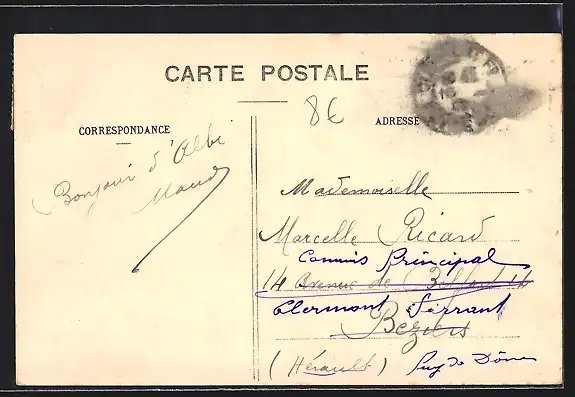 CARTE POSTALE
8€
CORRESPONDANCE
ADRESSE
Bonjour d'Albi
Maud
Mademoiselle
Marcelle Ricard
Commis Principal
14 Avenue de Belfort 14
Clermont Ferrant
Beziers
(Hérault) Puy de Dôme